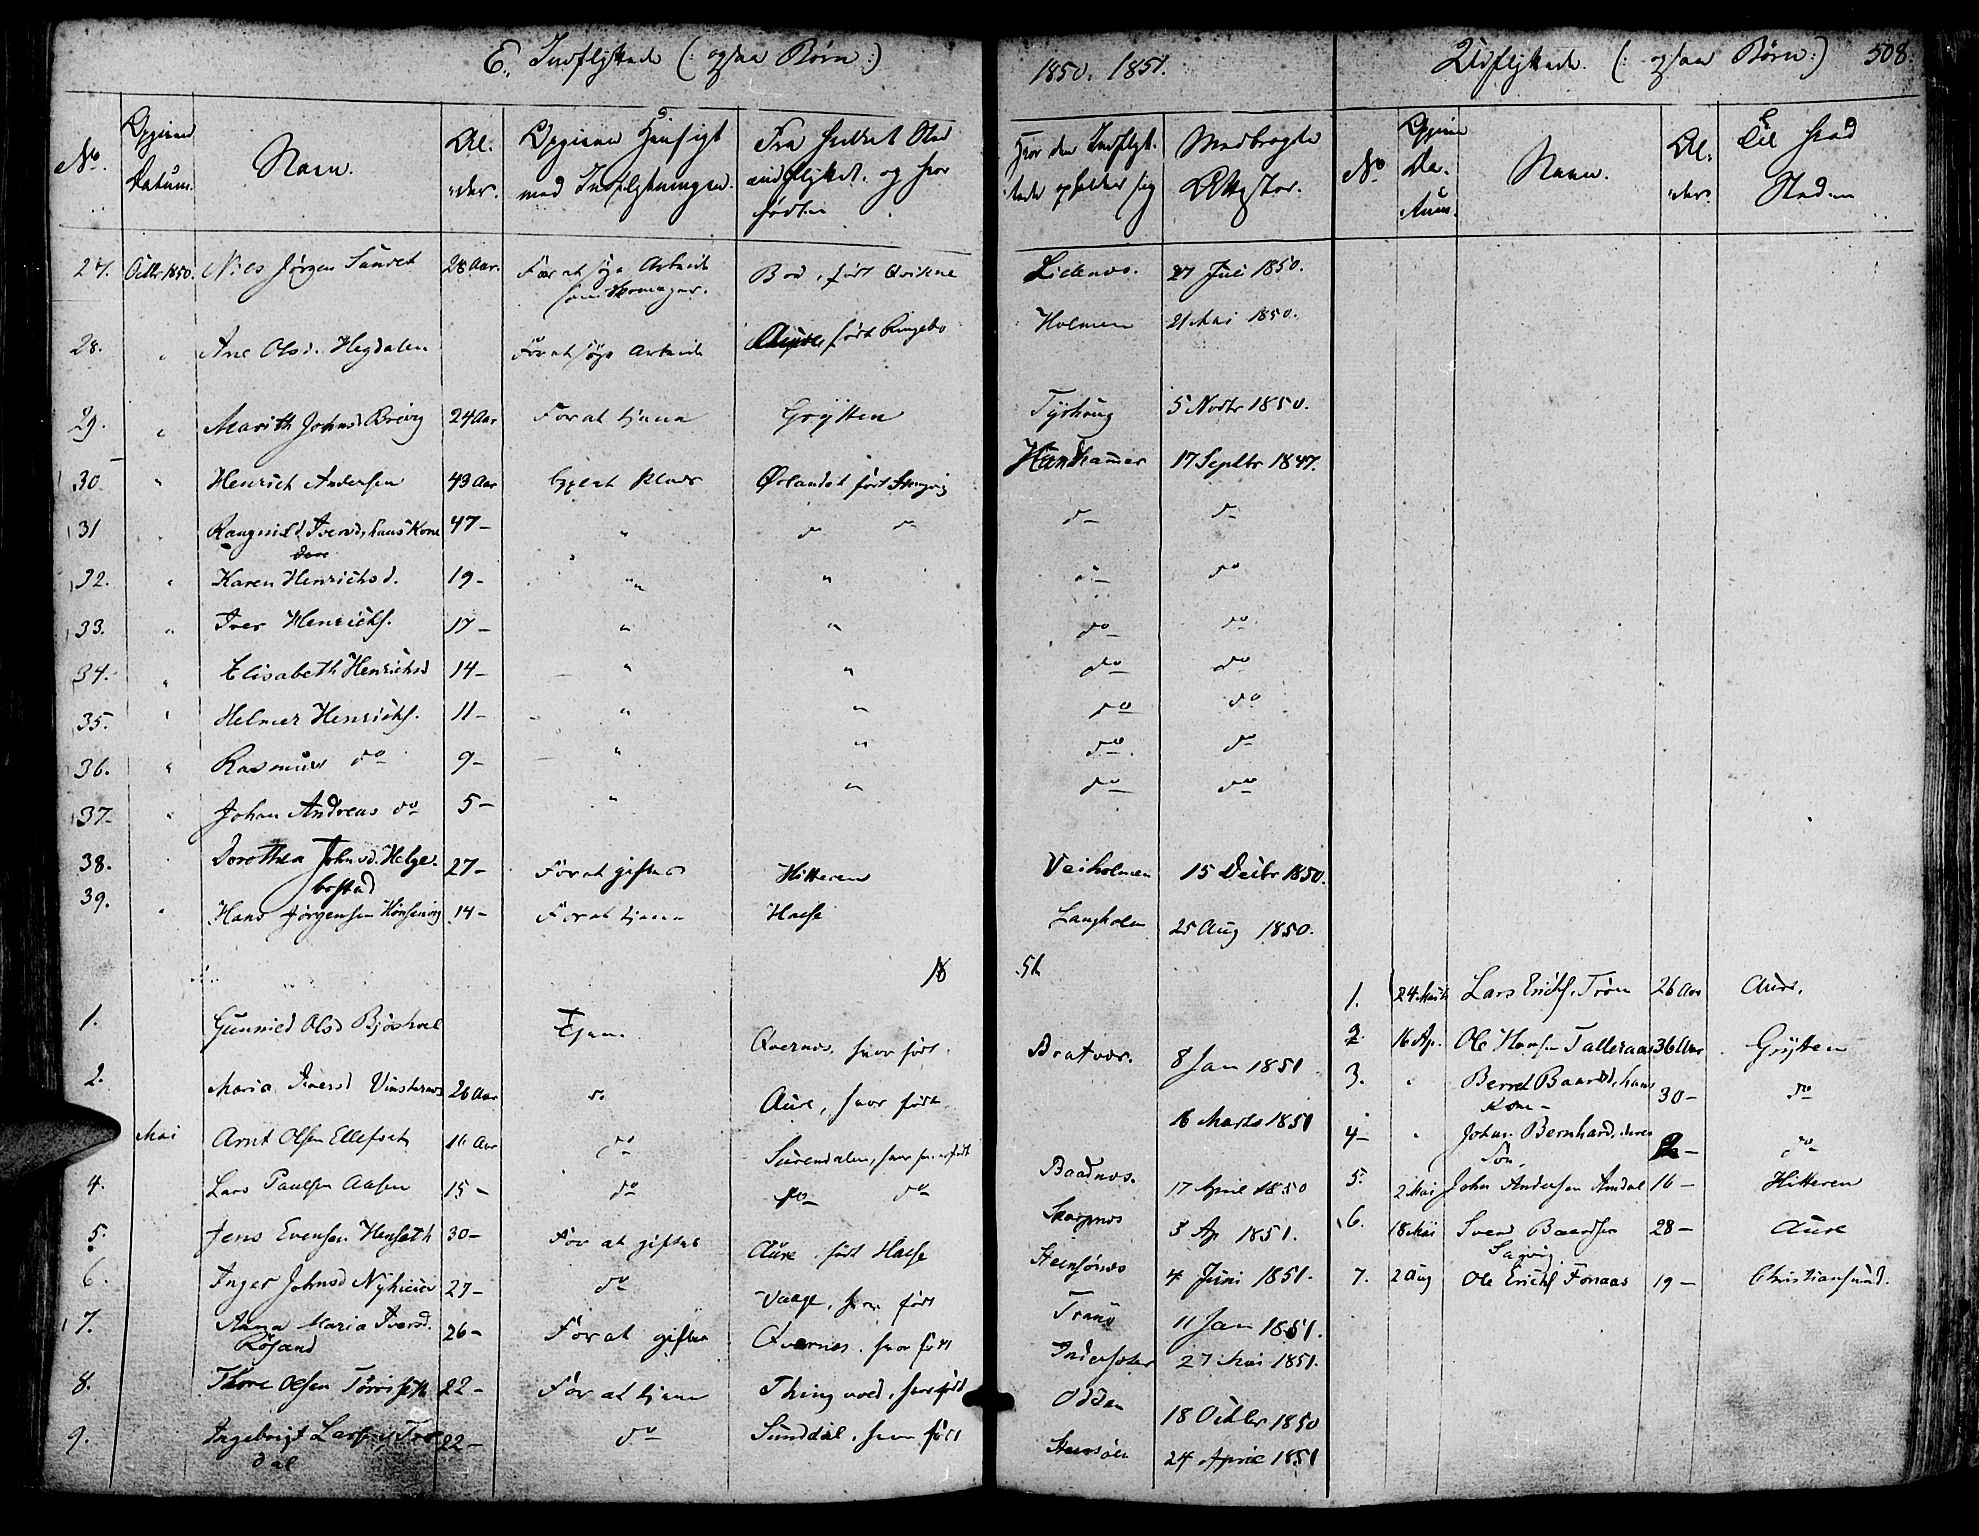 E. Indflyttede (: ogsaa Børn :)
1850. 1851.
Udflyttede. (: ogsaa Børn :) 508.
No. Opgivend Datum. Navn. Al- der. Opgiven Hensigt med Indflytningen. Fra hvilket Sted indflyttet, og hvor født
Hvor den Indflyt- tede opholder sig Medbragte Attester. No Opgiven Da- tum. Navn. Al- der. Til hvad Steder
27. Octbr 1850. Nils Jørgen Sundet 28 Aar. For at søge Arbeide som Skomager. Bod, født Qvikne Lillenæs. 27 Juli 1850.
28. " Ane Olsd. Hegdalen For at søge Arbeide Aure, født Ringebo Holmen 21 Mai 1850.
29. " Marith Johnsd Brevig 24 Aar For at tjene Grytten Tyrhaug 5 Novbr 1850.
30 " Henrich Andersen 43 Aar Kjøbt Plads Ørlandet født Stangvig Hestehammer 17 Septbr 1847.
31 " Raagnild Iversd, hans Kone 47 - " do do do do
32. " Karen Henrichsd. 19 - " " do do
33. " Iver Henrichs. 17 - " " do do
34. " Elisabeth Henrichsd 14 - " " do do
35. " Helmer Henrichs. 11 - " " do do
36. " Rasmus do 9 - " " do do
37. " Johan Andreas do 5 - " " do do
38. " Dorothea Johnsd. Helge- bostad 27 - For at giftes Hitteren Veiholmen 15 Decbr 1850.
39. " Hans Jørgensen Hønsevig 14 - For at tjene Halse Langholm 25 Aug 1850.
18 51.
1. Gunnild Olsd Bjøshol Tjene Qvernes, hvor født. Bratvær. 8 Jan 1851
2. Maria Iversd Vinsternes 26 Aar do Aure, hvor født. 16 Marts 1851
Mai Arnt Olsen Ellefset 16 Aar do Surendalen, hvor født Baadnæs. 17 April 1850
4. Lars Paulsen Aasen 15 - do do do Skarpnes 3 Ap 1851.
5. Jens Evensen Henseth 30 - For at giftes Aure, født Halse Steensønes 4 Juni 1851.
6. Inger Johnsd Nyhuus 27 - do Vaage, hvor født Tranø 11 Jan 1851.
7. Anna Maria Iversd. Røsand 26 - For at giftes Qvernes. hvor født 27 Mai 1851.
8. Thore Olsen Tørriseth 22 - For at tjene Thingvold, hvor født Odden 18 Octbr 1850
9. Ingebrigt Larsen Tro- dal 22 - do Sunddal, hvor født 24 April 1851
1. 24 Marts Lars Erichs. Trøen 26 Aar Aure.
2. 16 Ap. Ole Hansen Talleraas 36 Aar Grytten
3. " Berret Baardsd, hans Kone - 30 - do
4 - " Johan Bernhard, deres Søn, do
5. 2 Mai John Andersen Amdal 16 - Hitteren
6. 18 Mai Svend Baardsen Sagvig 28 - Aure
7. 2 Aug Ole Erichs Fonaas 19 - Christiansund.